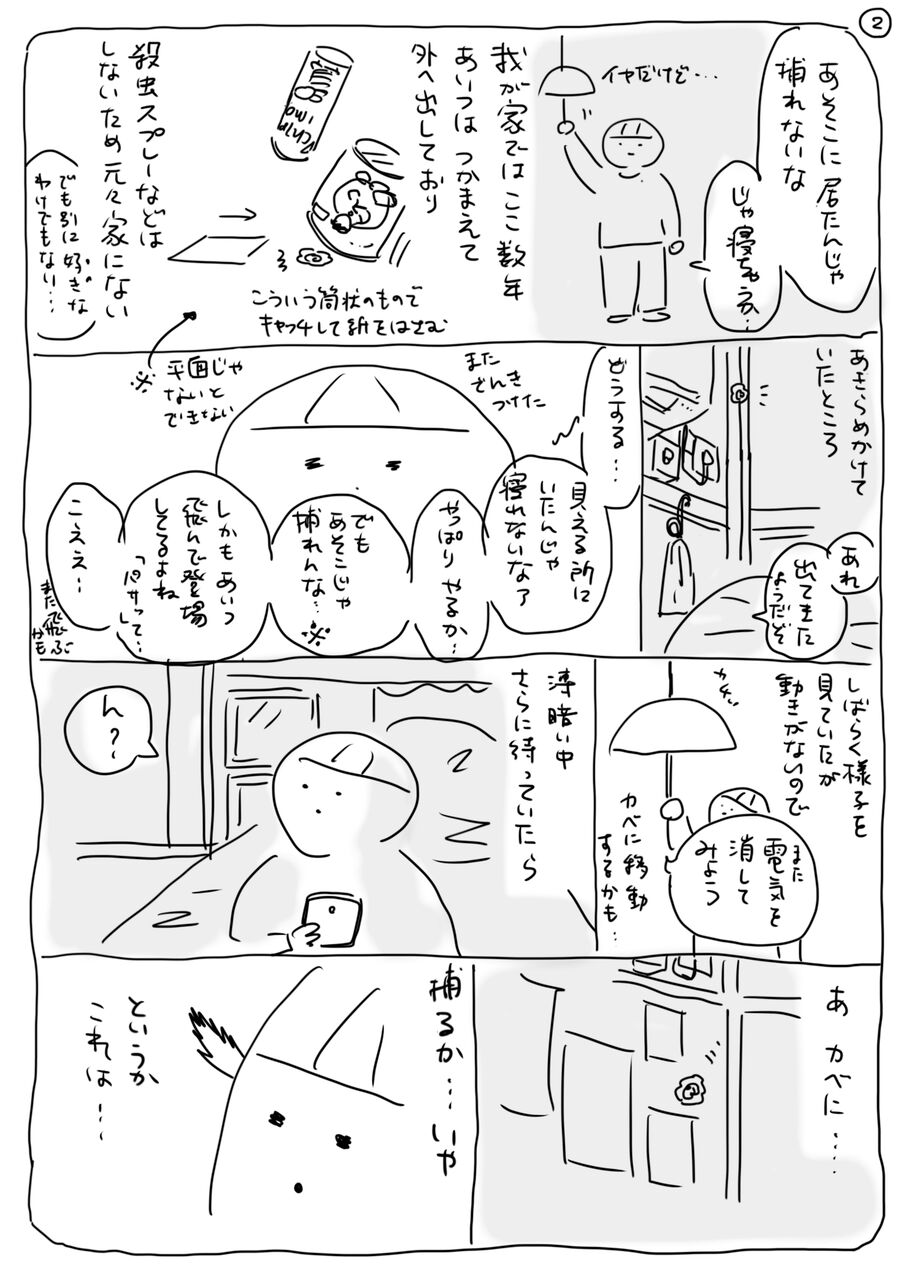 2
あそこに居たんじゃ
捕れないな
じゃ寝ちゃうか‥
イヤだけど・・・
我が家ではここ数年
あいつは つかまえて
外へ出しており
殺虫スプレーなどは
しないため元々家にない
でも別に好きな
わけでもない・・・
こういう筒状のもので
キャッチして紙をはさむ
※
平面じゃ
ないと
できない
あきらめかけて
いたところ
あれ
出てきた
ようだぞ
どうする・・・
また
でんき
つけた
見える所に
いたんじゃ
寝れないなぁ
やっぱり やるか‥
でも
あそこじゃ
捕れんな‥
※
しかも あいつ
飛んで登場
してるよね
「パサッ」って・・・
こええ〜
また飛ぶ
かも
しばらく様子を
見ていたが
動きがないので
カチッ
また
電気を
消して
みよう
カベに移動
するかも‥
薄暗い中
さらに待っていたら
ん?
あ カベに・・・・
捕るか・・・いや
というか
これは・・・